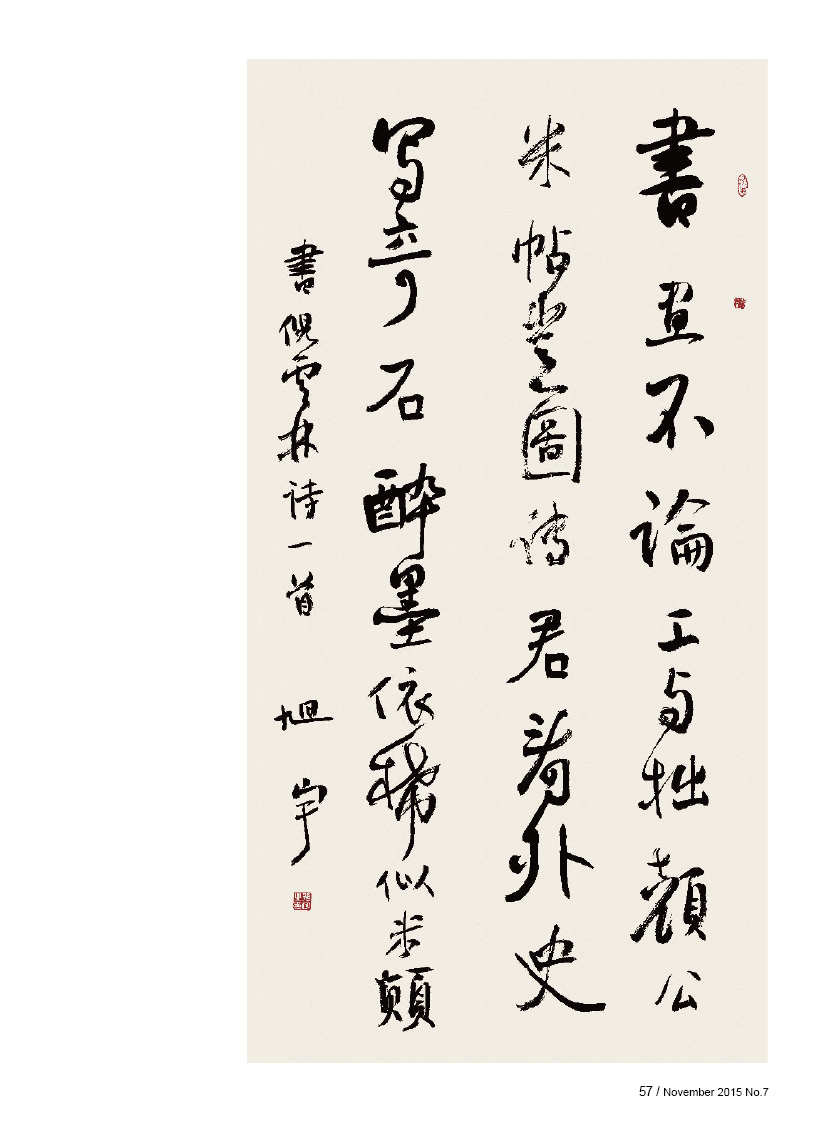 書畫不論工与拙顏公
米帖豈圖傳君看外史
写奇石醉墨依稀似米顛
書倪雲林詩一首 旭宇
57 / November 2015 No.7